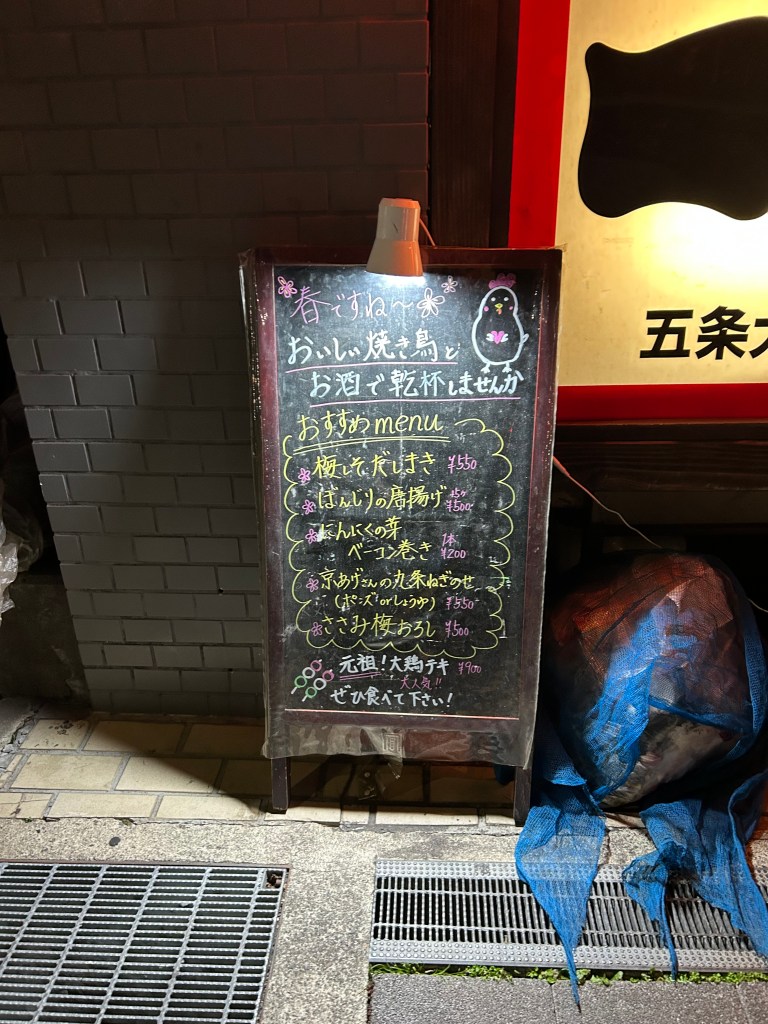 春ですね〜
おいしい焼き鳥と
お酒で乾杯しませんか
おすすめmenu
梅しそだしまき ¥550
ぼんじりの唐揚げ 5ヶ ¥500
にんにくの芽
ベーコン巻き 1本 ¥200
京あげさんの九条ねぎのせ
(ポンズorしょうゆ) ¥550
ささみ梅おろし ¥500
元祖!大鶏テキ ¥900
大人気!!
ぜひ食べて下さい!
五条